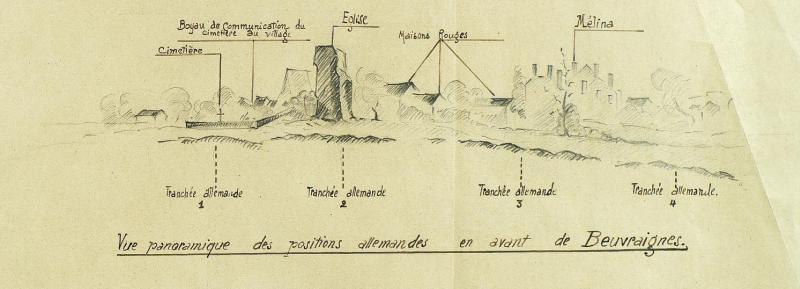 Boyau de Communication du
cimetière au village
Eglise
Maisons Rouges
Mélina
Cimetière
Tranchée allemande
1
Tranchée allemande
2
Tranchée allemande
3
Tranchée allemande.
4
Vue panoramique des positions allemandes en avant de Beuvraignes.